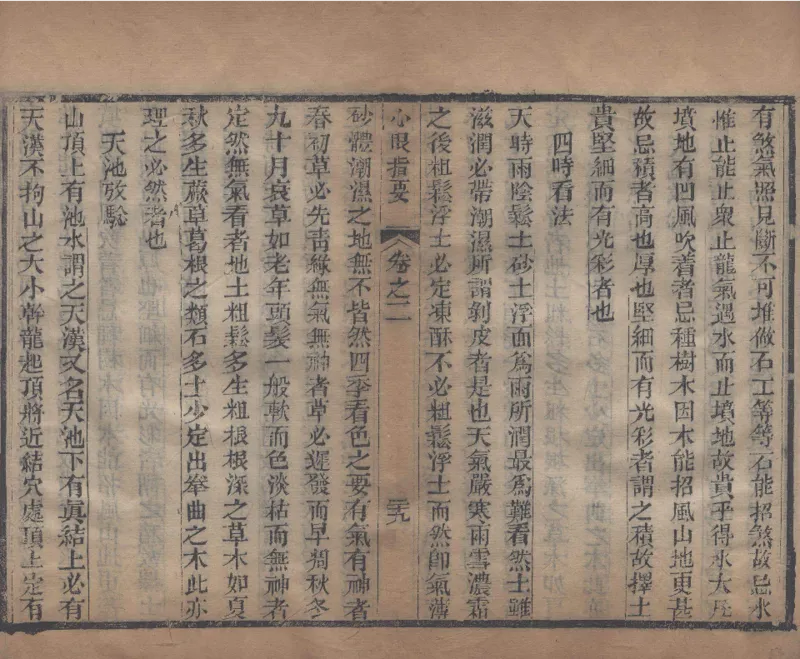 有煞氣照見斷不可堆做石工等等石能招煞故忌水
惟止能止衆止龍氣遇水而止墳地故貴乎得水大旺
墳地有凹風吹着者忌種樹木因木能招風山地更甚
故忌積者高也厚也堅細而有光彩者謂之積故擇土
貴堅細而有光彩者也
四時看法
天時雨陰鬆土砂土浮而為雨所潤最為難看然土雖
滋潤必帶潮濕所謂剝皮者是也天氣嚴寒雨雪濃霜
之後粗鬆浮土必定凍酥不必粗鬆浮土而然卽氣薄
心眼指要
卷之二
三九
砂體潮濕之地無不皆然四季看色之要有氣有神者
春初草必先靑綠無氣無神者草必遲發而早凋秋冬
九十月衰草如老年頭髮一般軟而色淡枯而無神者
定然無氣看者地土粗鬆多生粗根根深之草木如夏
秋多生蕨草葛根之類石多土少定出拳曲之木此亦
理之必然者也
天池放驗
山頂上有池水謂之天漢又名天池下有眞結上必有
天漢不拘山之大小幹龍起頂將近結穴處頂上定有